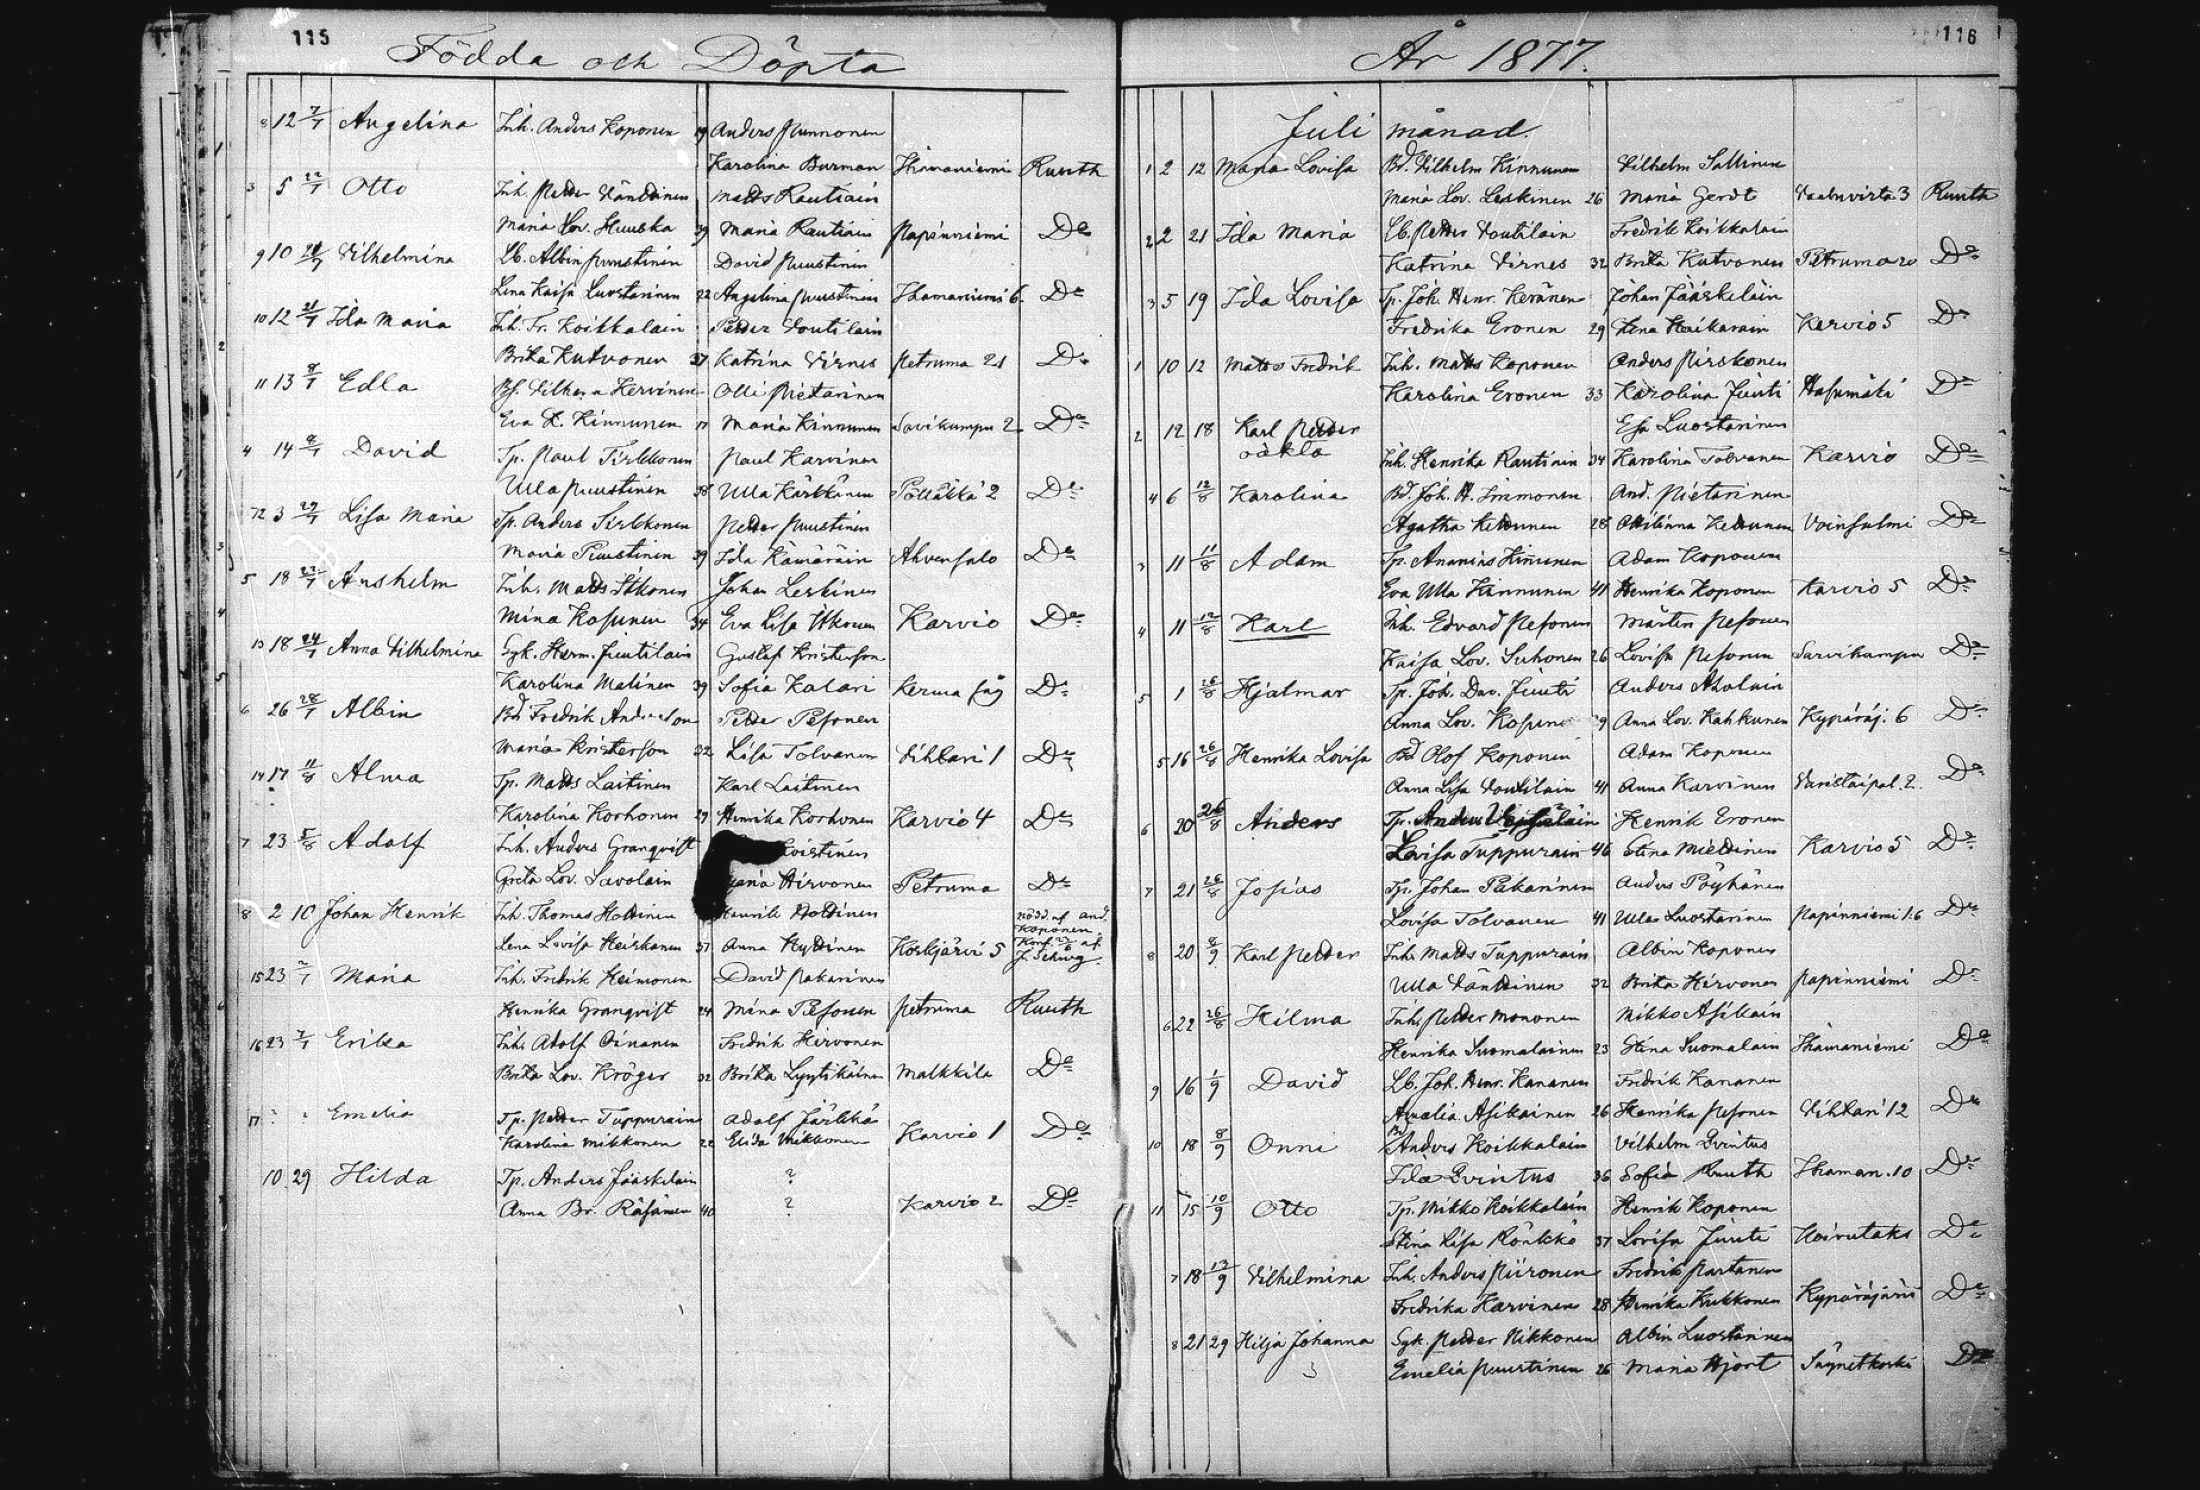 115
Födda och Döpta
8 12 7/7 Angelina Inh. Anders Koponen 29 Anders Punnonen
Karolina Burman Ihamaniemi Ruuth
3 5 22/7 Otto Inh. Petter Väntinen Matts Rautiain
Maria Lov. Huuska 39 Maria Rautiain Papinniemi Do
9 10 Vilhelmina Lb. Albin Puustinen David Puustinen
Lena Kaisa Luostarinen 22 Angelina Puustinen Ihamaniemi 6 Do
10 12 21/7 Ida Maria Inh. Fr. Koikkalain Petter Voutilain
Brita Kutvonen 37 Katrina Virnes Petruma 21 Do
11 13 8/7 Edla Kervinen Olli Pietarinen
Eva L. Kinnunen 17 Maria Kinnunen Savikumpu 2 Do
4 14 8/7 David Tp. Paul Tirkkonen Paul Karvinen
Ulla Puustinen 38 Ulla Kärkkänen Pölläkkä 2 Do
12 3 29/7 Lisa Maria Tp. Anders Sirkkonen Petter Puustinen
Maria Puustinen 39 Ida Kämäräin Ahvensalo Do
5 18 22/7 Anshelm Inh. Matts Itkonen Johan Leskinen
Mina Kosunen 34 Eva Lisa Itkonen Karvio Do
13 18 24/7 Anna Vilhelmina Sgk. Herm. Juutilain Gustaf Kristerson
Karolina Malinen 39 Sofia Kalari Kerma såg Do
6 26 28/7 Albin Bd Fredrik Anderson Petter Pesonen
Maria Kristerson 32 Lisa Tolvanen Vihtari 1 Do
14 17 11/8 Alma Tp. Matts Laitinen Karl Laitinen
Karolina Korhonen 29 Henrika Korhonen Karvio 4 Do
7 23 5/8 Adolf Inh. Anders Granqvist
Greta Lov. Savolain Maria Hirvonen Petruma Do
8 2 10 Johan Henrik Inh. Thomas Hottinen Henrik Hottinen nödd. af And. Koponen.
Lena Lovisa Heiskanen 37 Anna Hyttinen Koskjärvi 5 Konf. af J. Schwg.
15 23 2/7 Maria Inh. Fredrik Heimonen David Pakarinen
Henrika Granqvist 24 Mina Pesonen Petruma Ruuth
16 23 7/7 Erika Inh. Adolf Oinanen Fredrik Hirvonen
Brita Lov. Kröger 32 Brita Lyytikäinen Malkkila Do
17 ? ? Emelia Tp. Petter Tuppurain Adolf Järkkä
Karolina Mikkonen 22 Elida Mikkonen Karvio 1 Do
10 29 Hilda Tp. Anders Jääskelain ?
Anna Br. Räsänen 40 ? Karvio 2 Do
116
År 1877.
Juli månad.
1 2 12 Maria Lovisa Bd. Vilhelm Kinnunen Vilhelm Sallinen
Maria Lov. Leskinen 26 Maria Gerdt Vaaluvirta 3 Ruuth
2 2 21 Ida Maria Lb. Petter Voutilain Fredrik Koikkalain
Katrina Virnes 32 Brita Kutvonen Petruma 20 Do
3 5 19 Ida Lovisa Tp. Joh. Henr. Keränen Johan Jääskeläin
Fredrika Eronen 29 Lena Haikarain Karvio 5 Do
1 10 12 Matts Fredrik Inh. Matts Koponen Anders Pirskonen
Karolina Eronen 33 Karolina Juuti Hasumäki Do
2 12 18 Karl Petter Esa Luostarinen
oäkta Inh. Henrika Rautiain 34 Karolina Tolvanen Karvio Do
4 6 12/8 Karolina Bd. Joh. H. Immonen And. Pietarinen
Agatha Kettunen 28 Ottilinna Kettunen Voinsalmi Do
3 11 11/8 Adam Tp. Ananias Kinnunen Adam Koponen
Eva Ulla Kinnunen 41 Henrika Koponen Karvio 5 Do
4 11 12/8 Karl Inh. Edvard Pesonen Mårten Pesonen
Kaisa Lov. Suhonen 26 Lovisa Pesonen Sarvikumpu Do
5 1 26/8 Hjalmar Tp. Joh. Dav. Juuti Anders Aholain
Anna Lov. Kosune 39 Anna Lov. Kahkunen Kypäräj. 6 Do
5 16 26/8 Henrika Lovisa Bd Olof Koponen Adam Koponen
Anna Lisa Voutilain 41 Anna Karvinen Varistaipal. 2. Do
6 20 26/8 Anders Tp. Anders Henrik Eronen
Lovisa Tuppurain 46 Stina Miettinen Karvio 5 Do
7 21 26/8 Josias Tp. Johan Pakarinen Anders Pöyhänen
Lovisa Tolvanen 41 Ulla Luostarinen Papinniemi 1.6 Do
8 20 8/9 Karl Petter Inh. Matts Tuppurain Albin Koponen
Ulla Väntinen 32 Brita Hirvonen Papinniemi Do
6 22 26/8 Hilma Inh. Petter Mononen Mikko Asikain
Henrika Suomalainen 23 Stina Suomalain Ihamaniemi Do
9 16 1/9 David Lb. Joh. Henr. Kananen Fredrik Kananen
Amalia Asikainen 26 Henrika Pesonen Vihtari 12 Do
10 18 8/9 Onni Bd Anders Koikkalain Vilhelm Qvintus
Ida Qvintus 36 Sofia Ruuth Ihaman. 10 Do
11 15 10/9 Otto Tp. Mikko Koikkalain Henrik Koponen
Stina Lisa Rönkkö 37 Lovisa Juuti Koivulaks Do
7 18 13/9 Vilhelmina Inh. Anders Piironen Fredrik Partanen
Fredrika Karvinen 28 Henrika Kukkonen Kypäräjärvi Do
8 21 29 Hilja Johanna Sgk. Petter Nikkonen Albin Luostarinen
Emelia Puustinen 26 Maria Hjort Säynetkoski Do